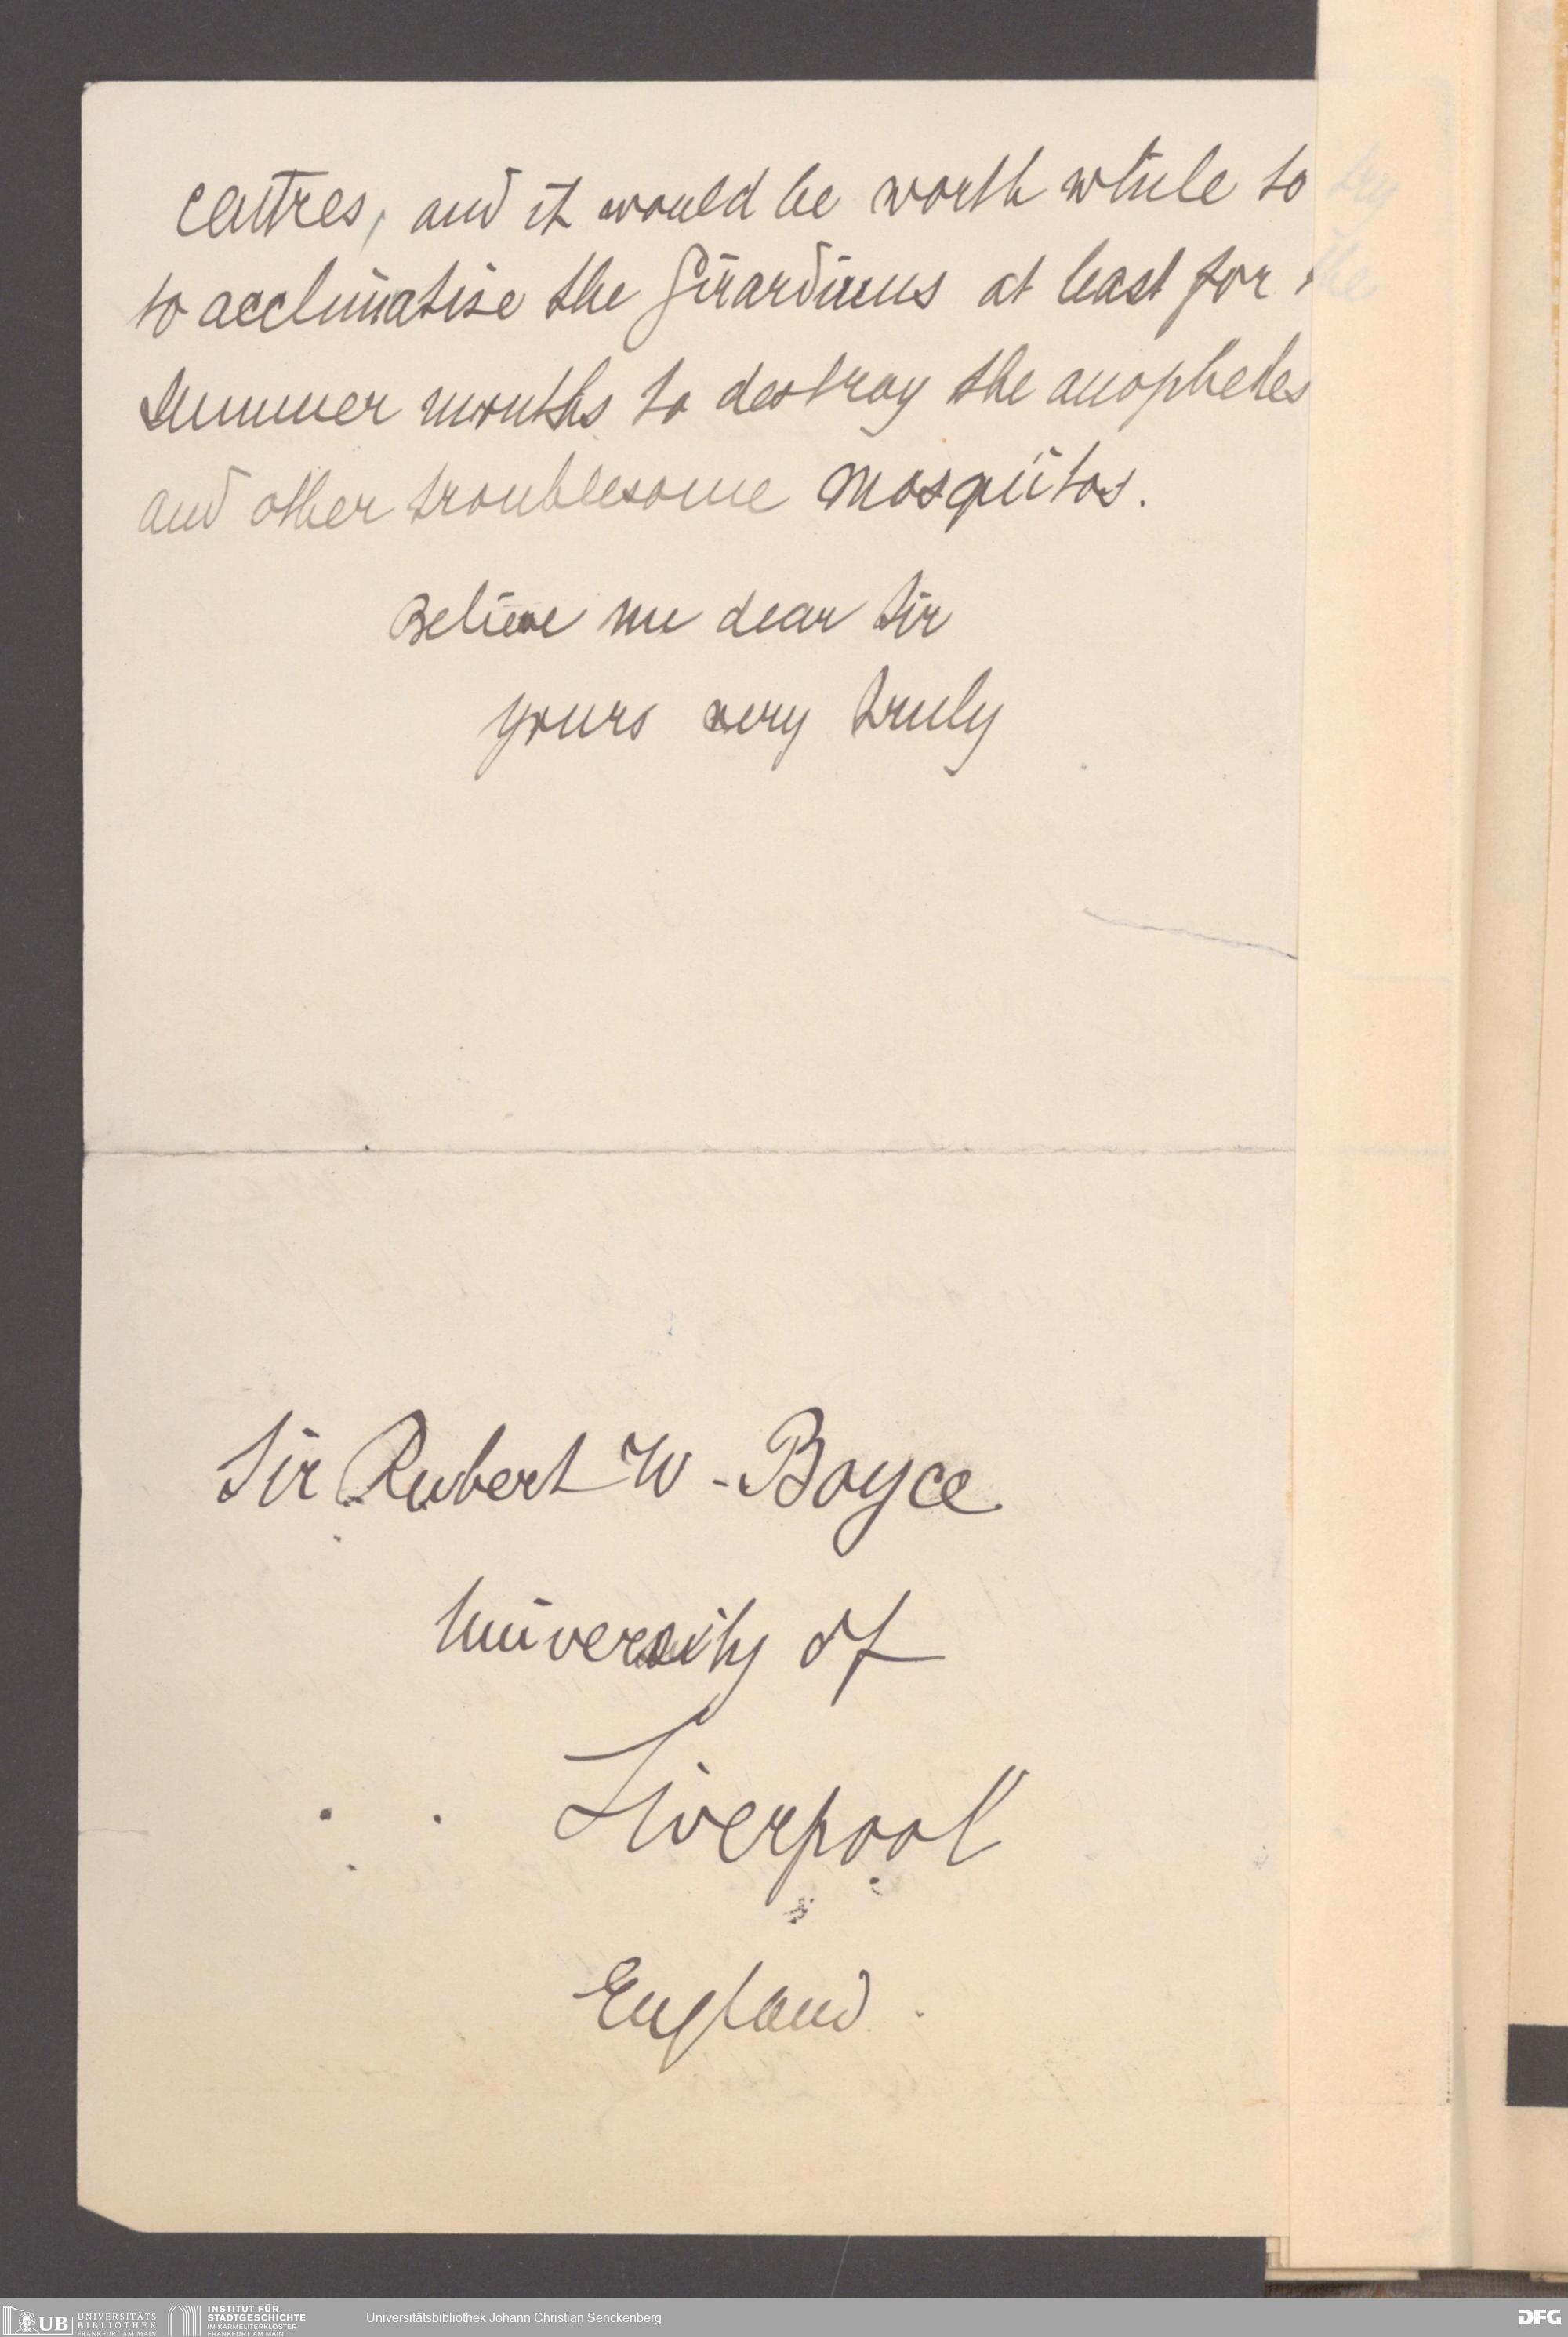 centres, and it would be worth while to try
to acclimatise the Girardinus at least for the
summer months to destroy the anopheles
and other troublesome mosquitos.
Believe me dear Sir
yours very truly
Sir Rubert W. Boyce
University of
Liverpool
England.
UB UNIVERSITÄTS
BIBLIOTHEK
FRANKFURT AM MAIN
INSTITUT FÜR
STADTGESCHICHTE
IM KARMELITERKLOSTER
FRANKFURT AM MAIN
Universitätsbibliothek Johann Christian Senckenberg
DFG